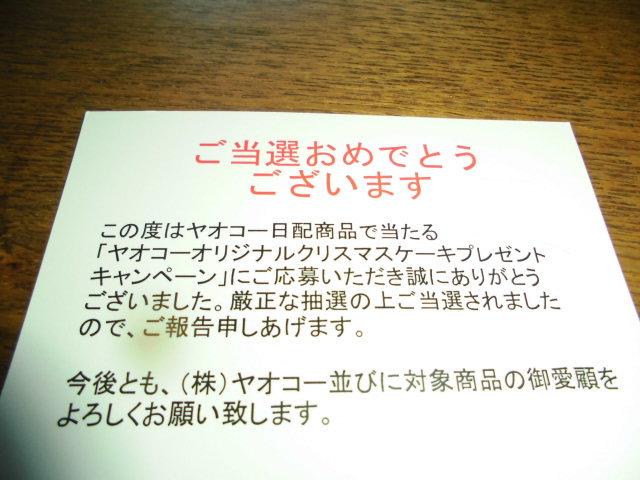 ご当選おめでとう
ございます
この度はヤオコー日配商品で当たる
「ヤオコーオリジナルクリスマスケーキプレゼント
キャンペーン」にご応募いただき誠にありがとう
ございました。厳正な抽選の上ご当選されました
ので、ご報告申しあげます。
今後とも、(株)ヤオコー並びに対象商品の御愛顧を
よろしくお願い致します。